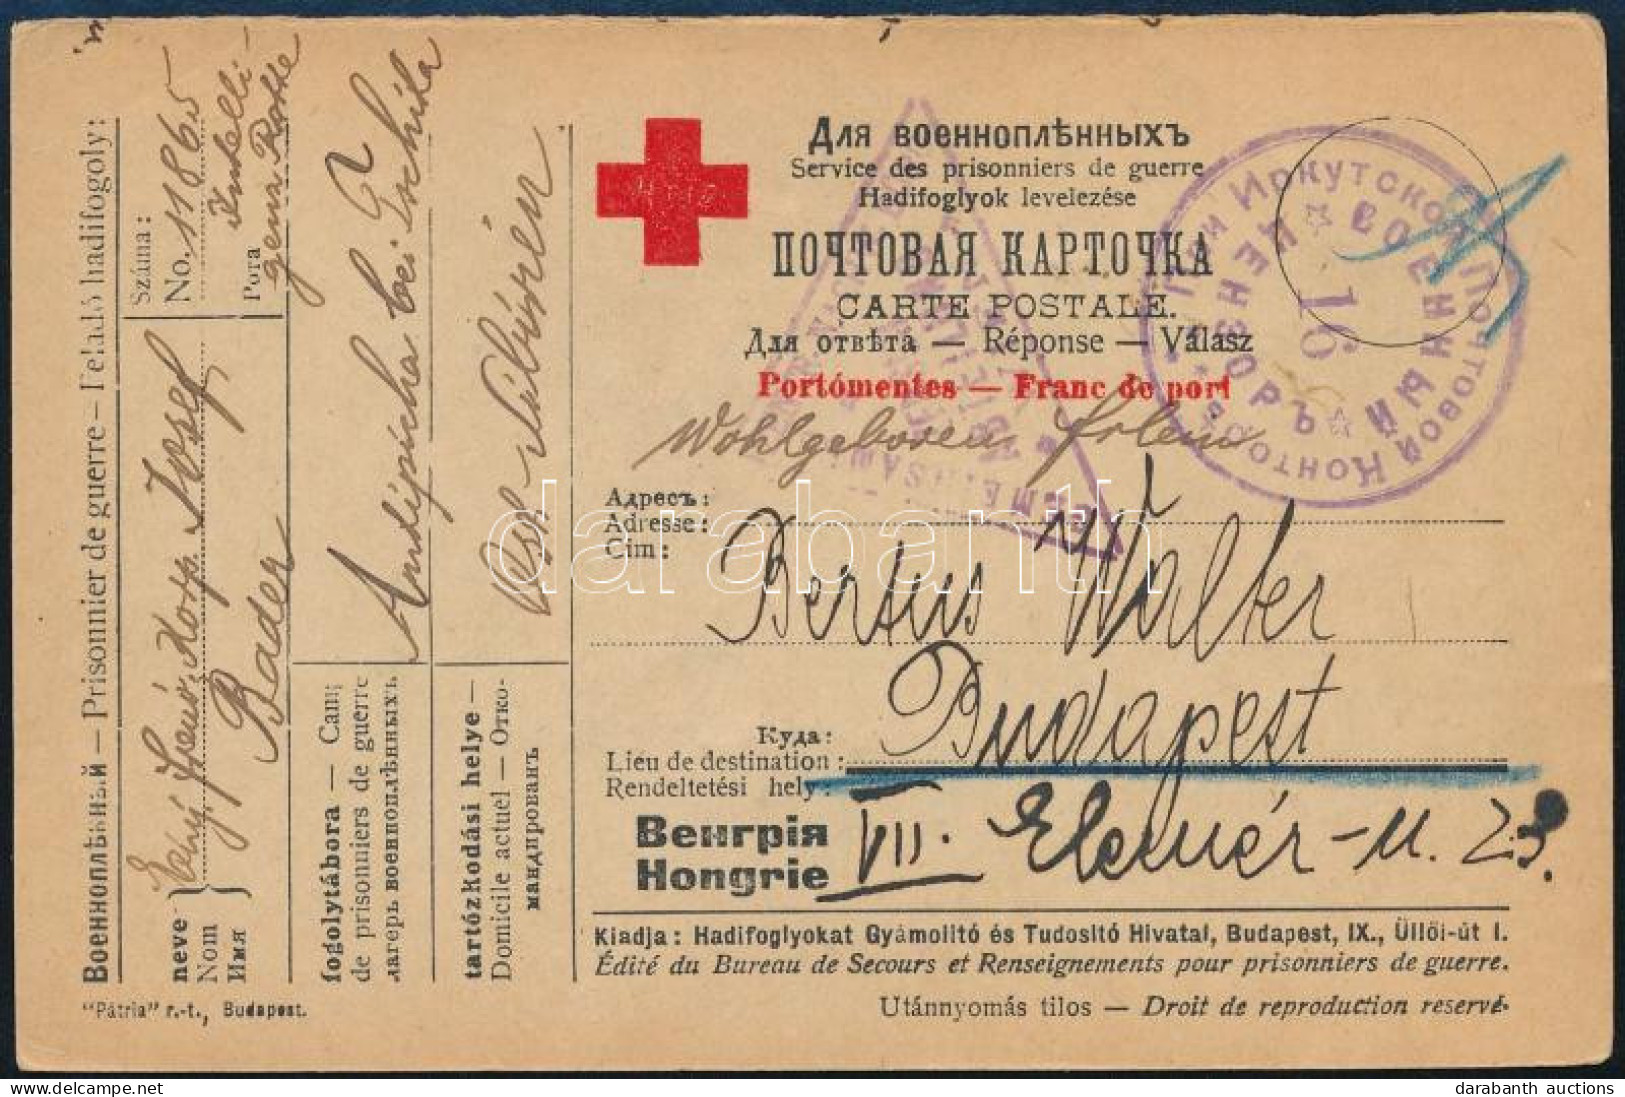 Для военноплѣнныхъ
Service des prisonniers de guerre
Hadifoglyok levelezése
ПОЧТОВАЯ КАРТОЧКА
CARTE POSTALE.
Для отвѣта — Réponse — Válasz
Portómentes — Franc de port
Wohlgeboren
Адресъ:
Adresse:
Cim:
Bertus Walter
Куда:
Lieu de destination:
Rendeltetési hely:
Budapest
Венгрія
Hongrie
VII. Elemér-u. 23.
Kiadja: Hadifoglyokat Gyámolitó és Tudositó Hivatal, Budapest, IX., Üllői-út I.
Édité du Bureau de Secours et Renseignements pour prisonniers de guerre.
Utánnyomás tilos — Droit de reproduction reservé.
"Pátria" r.-t., Budapest.
Военноплѣнный — Prisonnier de guerre — Feladó hadifogoly:
neve
Nom
Имя
Korp. Josef
Bader
Száma:
No. 11865
Rota
fogolytábora — Camp
de prisonniers de guerre
лагерь военноплѣнныхъ
Antipicha bei Tschita
tartózkodási helye —
Domicile actuel — Отко-
мандированъ
Ost Sibirien
При Иркутской Почтовой Конторѣ
ВОЕННЫЙ ЦЕНЗОРЪ
16
darabanth
darabanth auctions